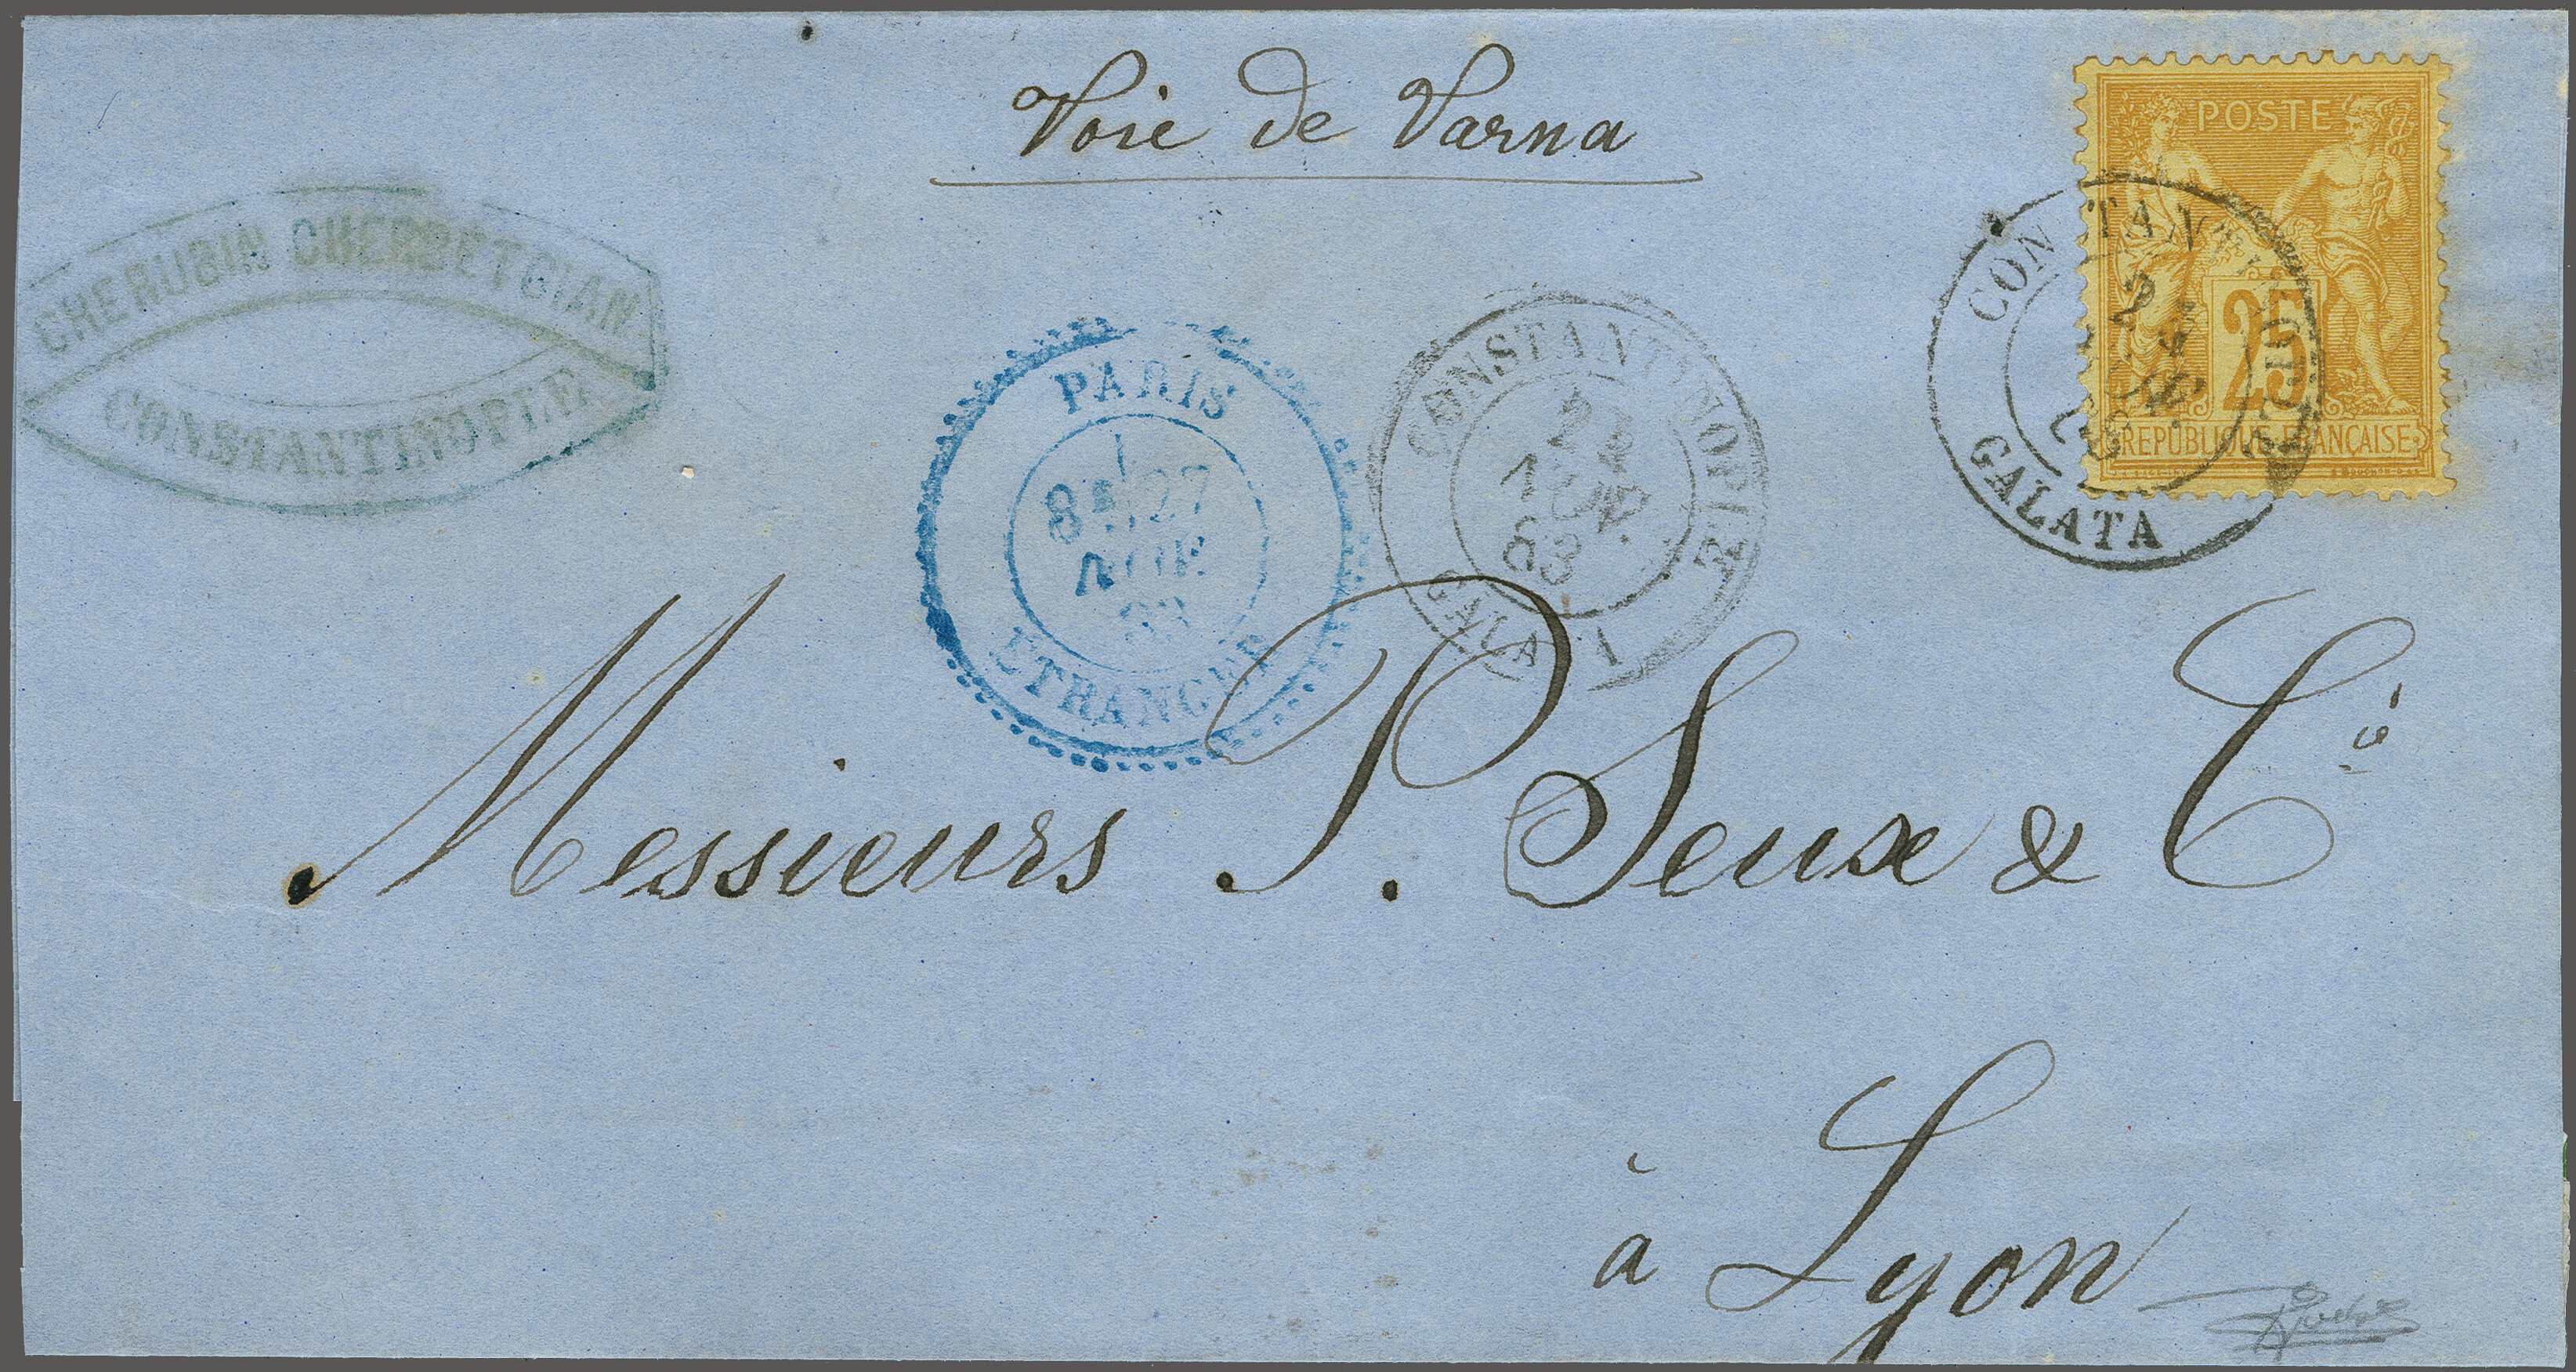 Voie de Varna
POSTE
25
REPUBLIQUE FRANÇAISE
CONSTANTINOPLE
GALATA
CHERUBIN CHERBETGIAN
CONSTANTINOPLE
PARIS
27
NOV
ETRANGER
CONSTANTINOPLE
NOV.
83
GALATA
Messieurs P. Seux & Cie
à Lyon